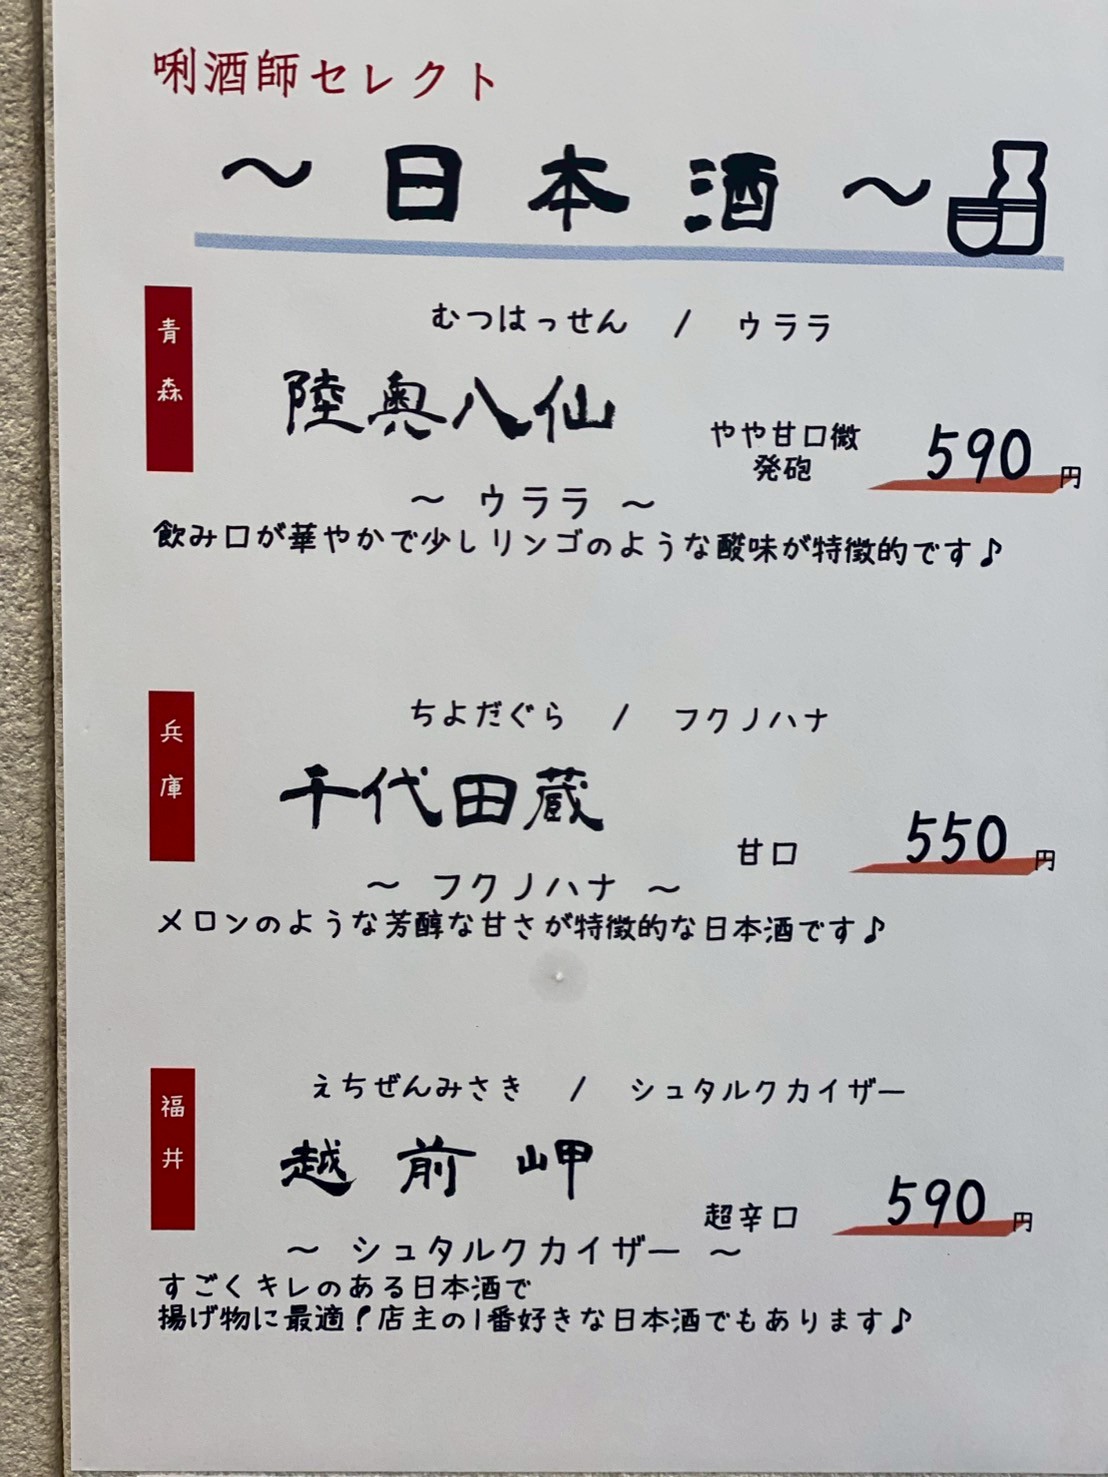 唎酒師セレクト
～日本酒～
青森
むつはっせん / ウララ
陸奥八仙
やや甘口微
発砲
590円
～ ウララ ～
飲み口が華やかで少しリンゴのような酸味が特徴的です♪
兵庫
ちよだぐら / フクノハナ
千代田蔵
甘口
550円
～ フクノハナ ～
メロンのような芳醇な甘さが特徴的な日本酒です♪
福井
えちぜんみさき / シュタルクカイザー
越前岬
超辛口
590円
～ シュタルクカイザー ～
すごくキレのある日本酒で
揚げ物に最適！店主の1番好きな日本酒でもあります♪